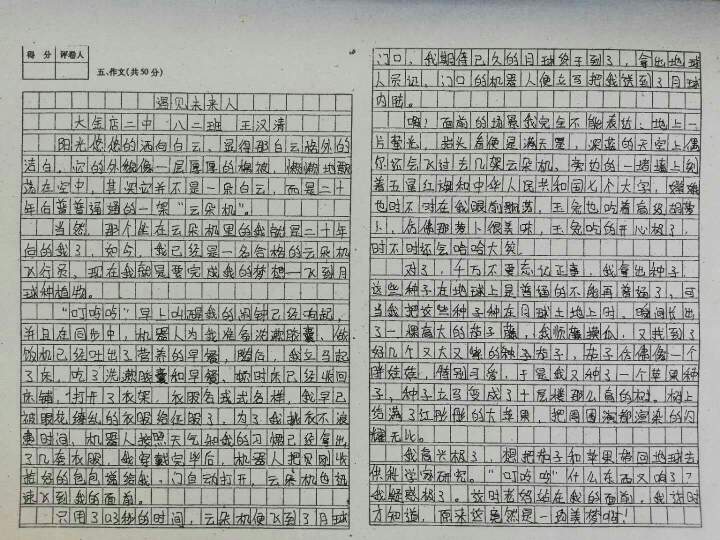 得 分 评卷人
五、作文(共50分)
遇见未来人
大金店二中 八二班 王汉清
阳光悠悠的洒向白云，显得那白云格外的
洁白，它的外貌像一层厚厚的棉被，懒懒地飘
荡在空中，其实它并不是一朵白云，而是二十
年后普普通通的一架“云朵机”。
当然，那个坐在云朵机里的我就是二十年
后的我了，如今，我已经是一名合格的云朵机
飞行员，现在我就是要完成我的梦想—飞到月
球种植物。
“叮呤呤”早上叫醒我的闹钟已经响起，
并且在同步中，机器人为我准备洗漱胶囊、做
饭机已经吐出了营养的早餐，随后，我立马起
了床，吃了洗漱胶囊和早餐，顿时床已经收回
床铺，打开了衣架，衣服各式各样，我早已
被眼花缭乱的衣服给征服了，为了我挑衣不浪
费时间，机器人按照天气和我的习惯已经拿出
了几套衣服，我穿戴完毕后，机器人把见刚收
拾好的包包递给我，门自动打开，云朵机也迅
速飞到我的面前。
只用了03秒的时间，云朵机便飞到了月球
门口，我期待已久的月球终于到了，拿出地球
人员证，门口的机器人便立马把我送到了月球
内部。
啊！面前的场景我完全不能表达：地上一
片荧光，抬头看便是满天星，深蓝的天空上偶
尔还会飞过去几架云朵机，旁边的一墙墙上刻
着五星红旗和中华人民共和国七个大字，嫦娥
也时不时在我眼前飘荡，玉兔也吃着高级胡萝
卜，仿佛那萝卜很美味，玉兔吃的开心极了，
时不时还会哈哈大笑。
对了，千万不要忘记正事，我拿出种子，
这些种子在地球上是普通的不能再普通了，可
当我把这些种子种在月球土地上时，瞬间长出
了一棵高大的茄子藤，我顺藤摸瓜，又找到了
好几个又大又紫的茄子，茄子仿佛像一个
胖娃娃，特别可爱，于是我又种了一个苹果种
子，种子立马变成了十层楼那么高的树。树上
结满了红彤彤的大苹果，把周围演都渲染的闪
耀无比。
我高兴极了，想把茄子和苹果带回地球去
供科学家研究。“叮呤呤”什么东西又响了？
我疑惑极了。这时老妈站在我的面前，我这时
才知道，原来这竟然是一场美梦呀！